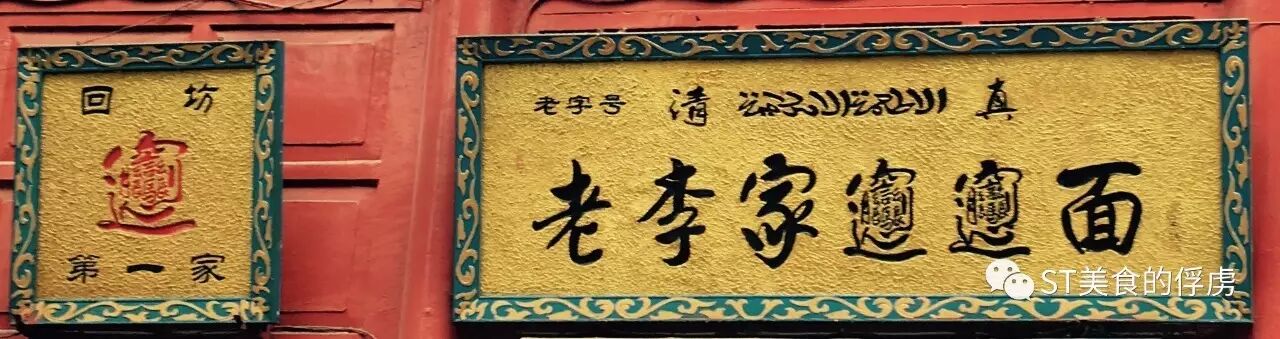 回坊
𰻞
第一家
老字号 清 真
老李家𰻞𰻞面
ST美食的俘虏